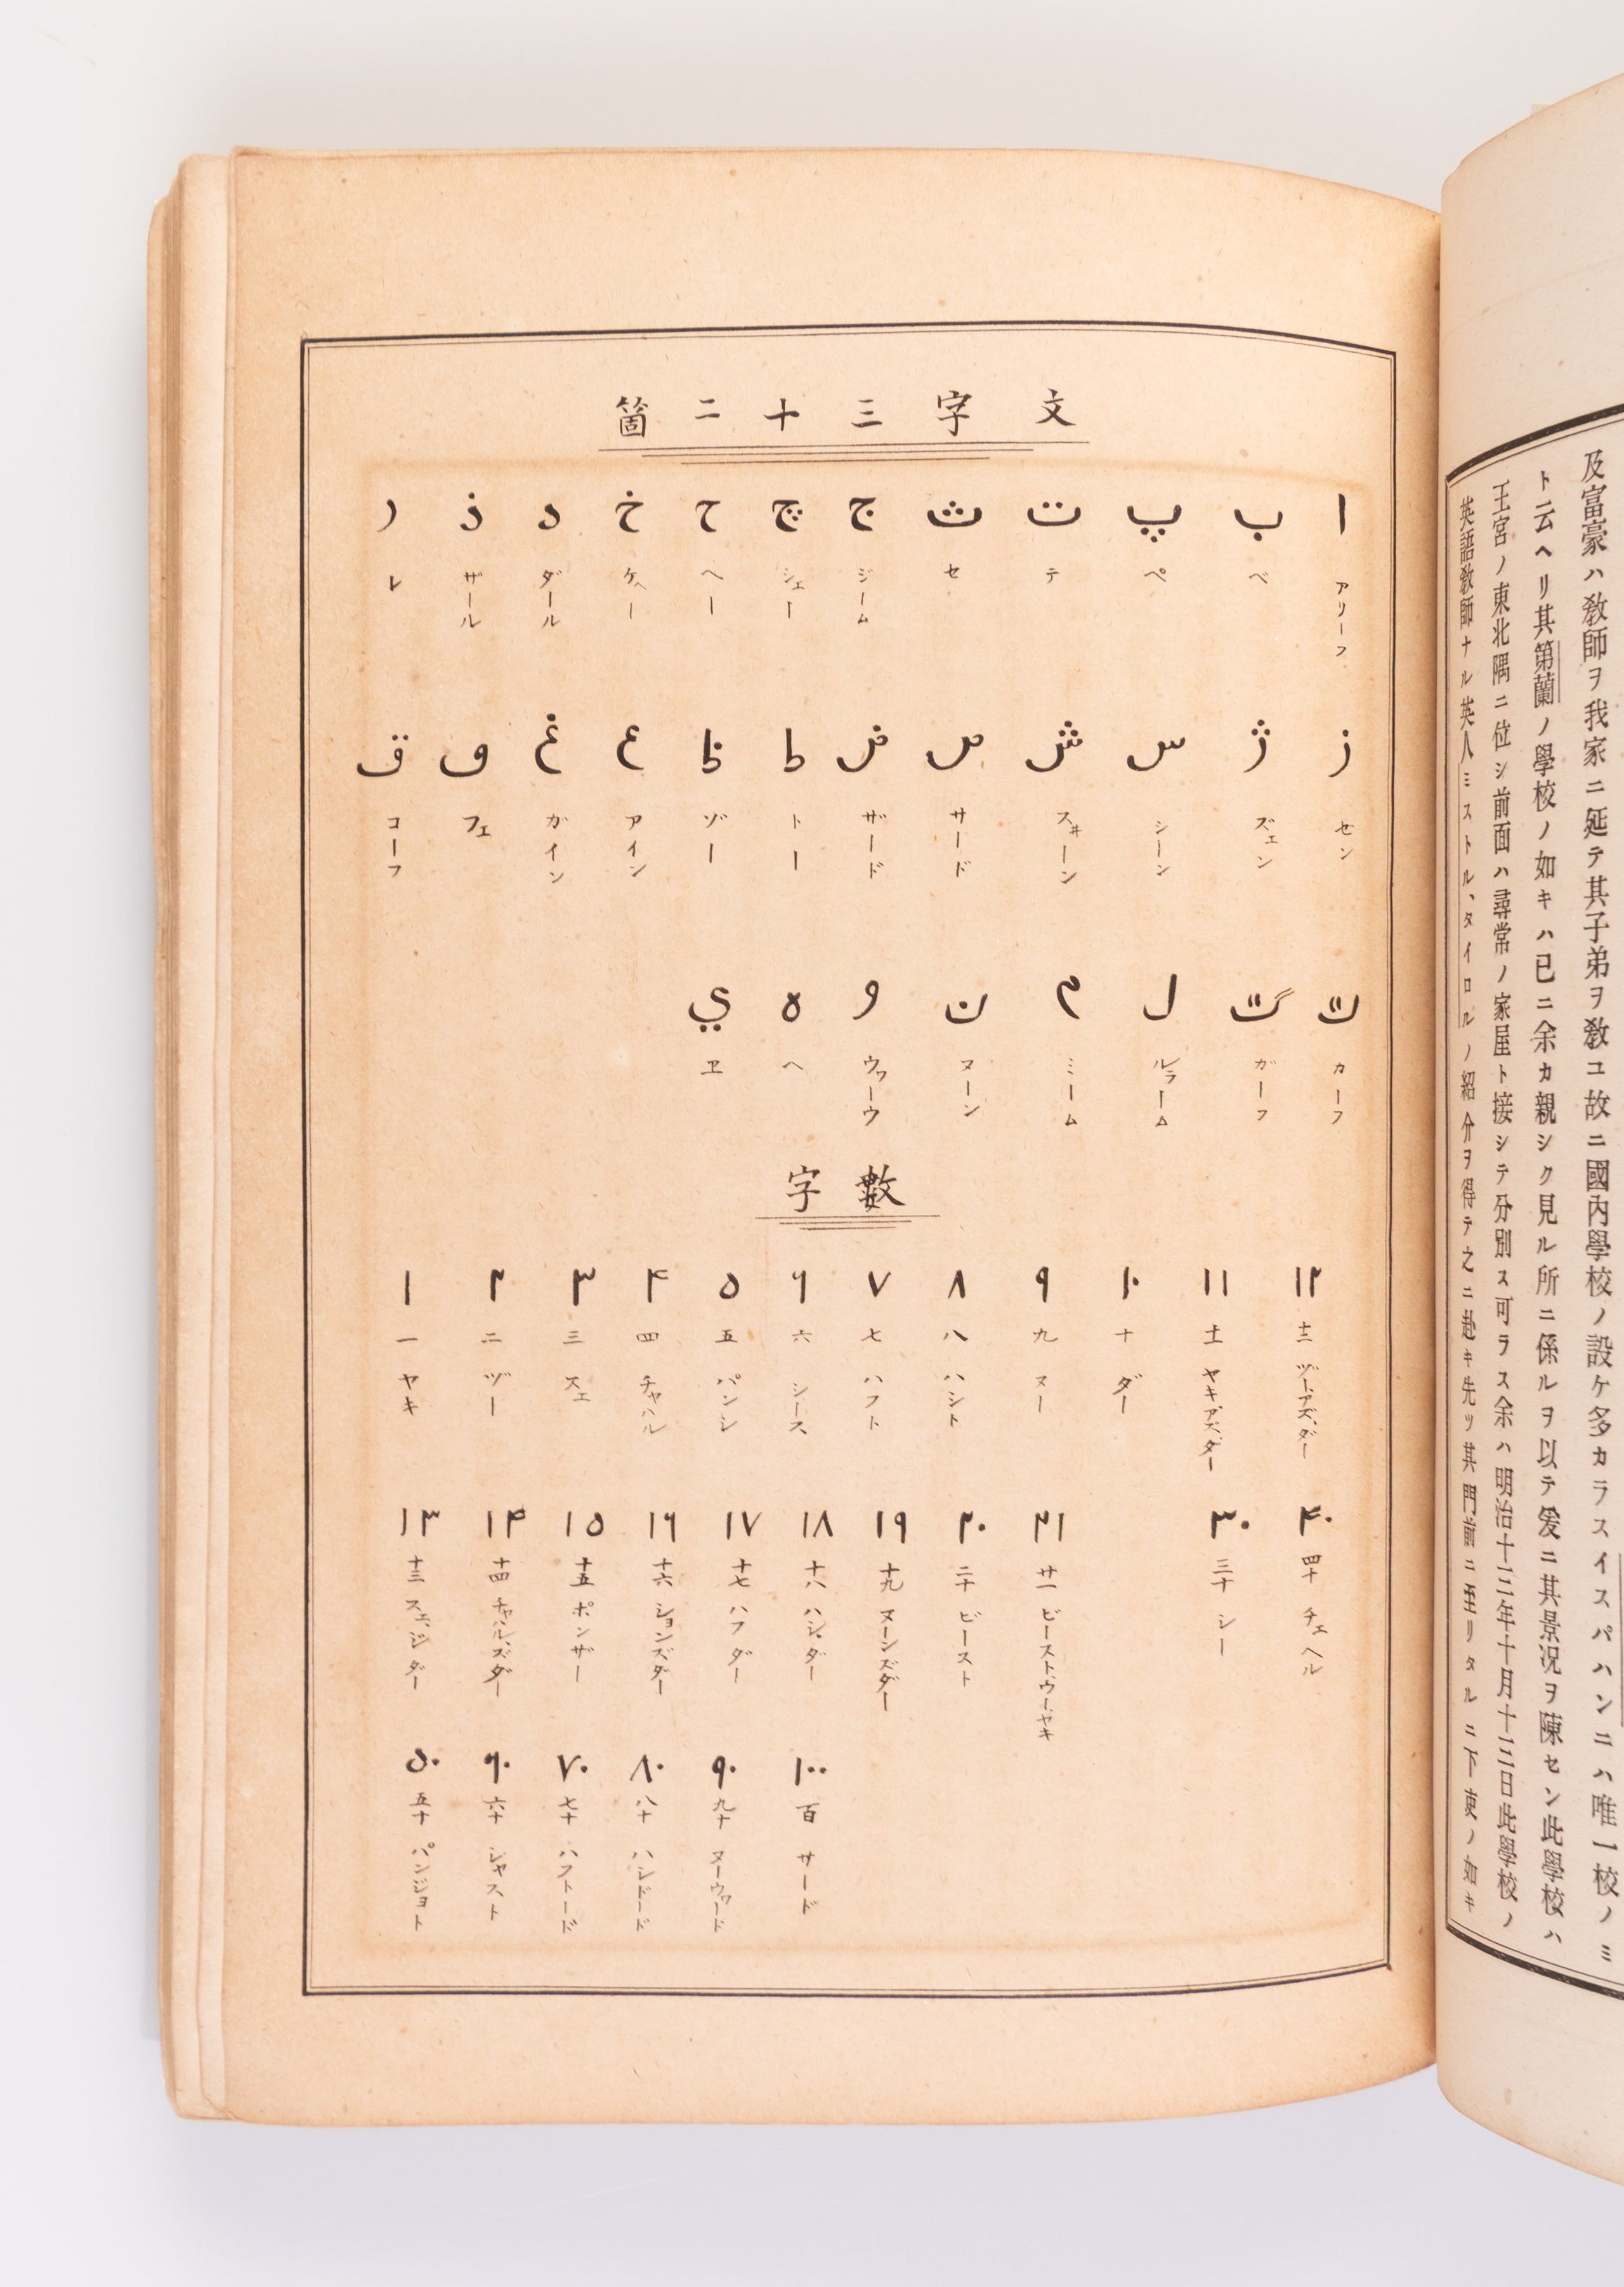 及富豪ハ敎師ヲ我家ニ延テ其子弟ヲ敎ユ故ニ國內學校ノ設ケ多カラスイスパハンニハ唯一校ノミ
ト云ヘリ其第蘭ノ學校ノ如キハ已ニ余カ親シク見ル所ニ係ルヲ以テ爰ニ其景況ヲ陳セン此學校ハ
王宮ノ東北隅ニ位シ前面ハ尋常ノ家屋ト接シテ分別ス可ラス余ハ明治十三年十月十三日此學校ノ
英語敎師ナル英人ミストル、タイロルノ紹分ヲ得テ之ニ赴キ先ツ其門前ニ至リタルニ下東ノ如キ
文字三十二箇
ا ب پ ت ث ج چ ح خ د ذ ر
アリーフ ベ ペ テ セ ジーム シェー ヘー ケヘー ダール ザール レ
ز ژ س ش ص ض ط ظ ع غ ف ق
ゼン ズェン シーン スヰーン サード ザード トー ゾー アイン ガイン フェ コーフ
ك گ ل م ن و ه ي
カーフ ガーフ ルラーム ミーム ヌーン ウワーウ ヘ ヱ
數字
۱ ۲ ۳ ۴ ۵ ۶ ۷ ۸ ۹ ۱۰ ۱۱ ۱۲
一 二 三 四 五 六 七 八 九 十 十一 十二
ヤキ ヅー スェ チャハル パンシ シース ハフト ハシト ヌー ダー ヤキ、アズ、ダー ヅー、アズ、ダー
۱۳ ۱۴ ۱۵ ۱۶ ۱۷ ۱۸ ۱۹ ۲۰ ۲۱ ۳۰ ۴۰
十三 十四 十五 十六 十七 十八 十九 二十 廿一 三十 四十
スェ、ジダー チャハル、ズダー ポンザー ションズダー ハフダー ハシ、ダー ヌーンズダー ビースト ビースト、ウー、ヤキ シー チェヘル
۵۰ ۶۰ ۷۰ ۸۰ ۹۰ ۱۰۰
五十 六十 七十 八十 九十 百
パンジョト シャスト ハフトード ハシドード ヌーウワード サード